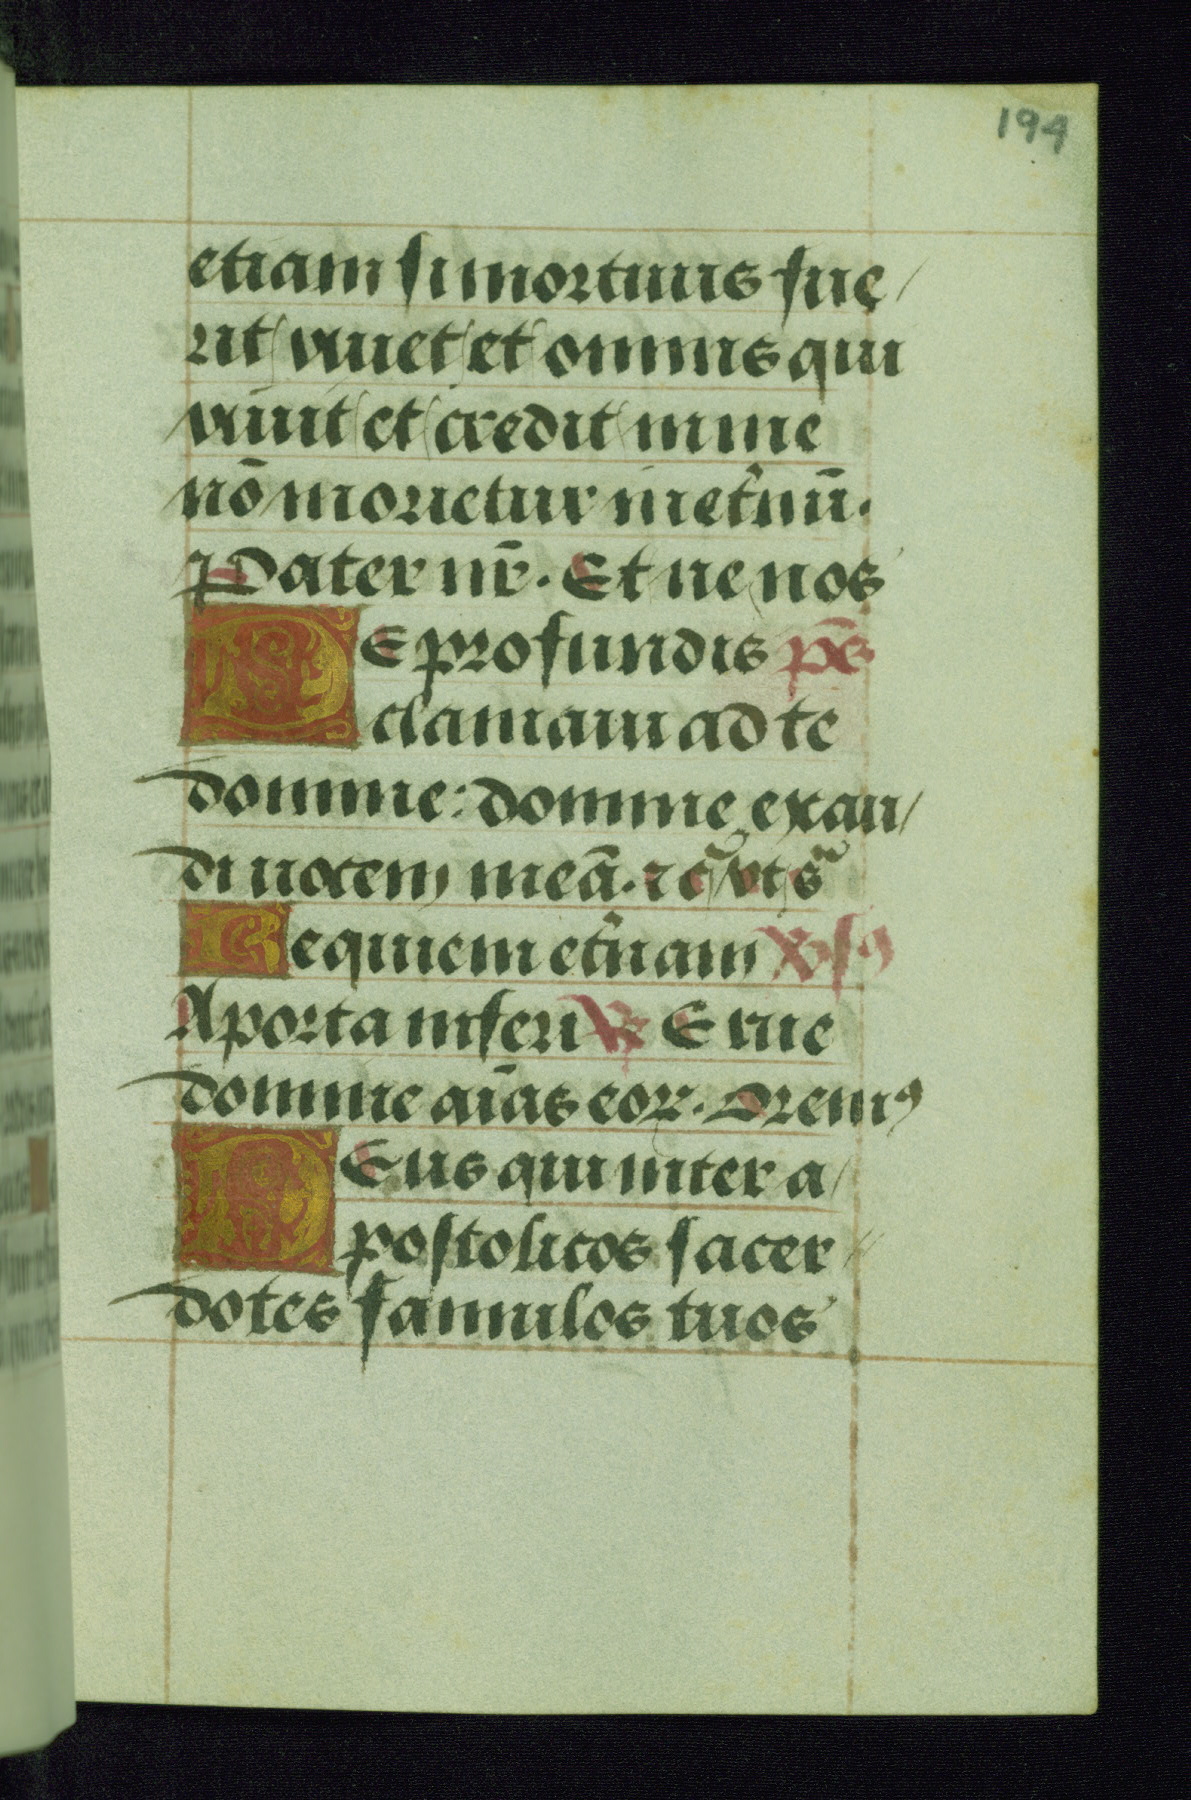 194
etiam si mortuus fue/
rit viuet et omnis qui
viuit et credit in me
nō morietur in etˀnū.
Pater nr̄. Et ne nos
DE profundis ps̄
clamaui ad te
domine: domine exau/
di uocem meā. ⁊c̄ vt sª
Requiem etˀnam Vˢꝰ
A porta inferi ℟ Erue
domine aīas eoꝝ. Oremꝰ
DEus qui inter a/
postolicos sacer
dotes famulos tuos